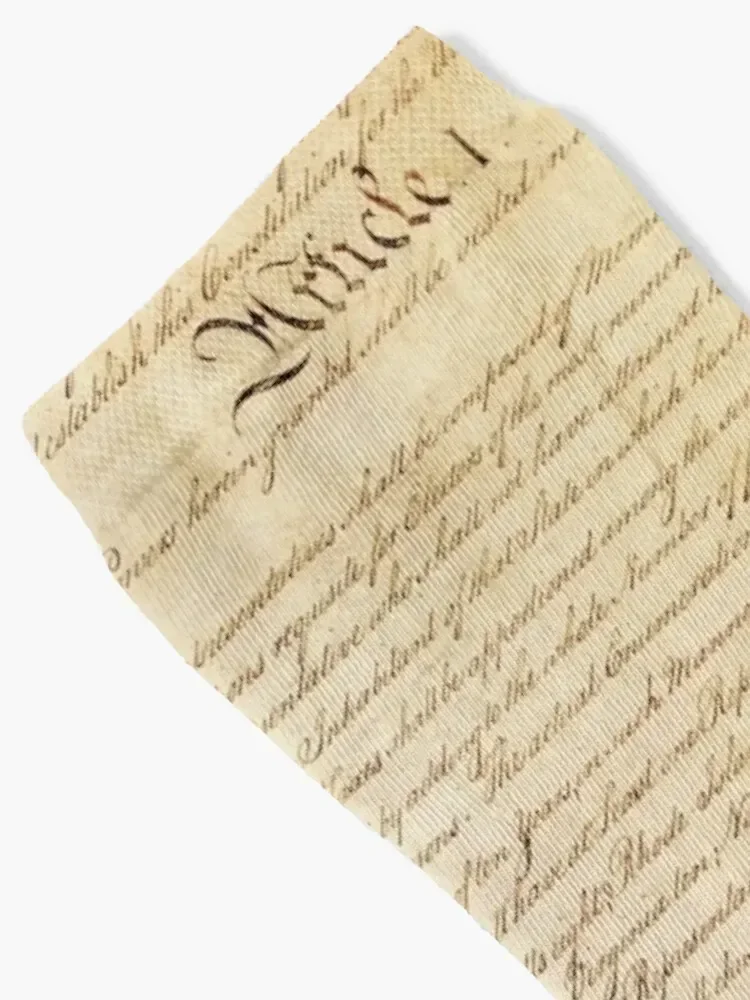 establish this Constitution for the
Article 1
Powers herein granted shall be vested in
shall be composed of Mem
ons requisite for Electors of the most numerou
entative who shall not have attained to
Inhabitant of that State in which he sh
shall be apportioned among the se
by adding to the whole Number of
ions. The actual Enumeration
of ten Years, in such Manne
l have at Least one Rep
ts eight, Rhode Isla
Virginia ten, N
Representat